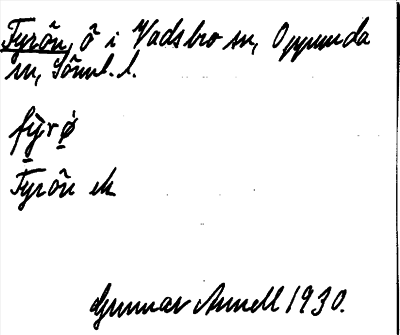 Fyrön, ö i Vadsbro sn, Oppunda
sn, Sörml. l.
fỳrø̀
Fyrön ek
Gunnar Annell 1930.